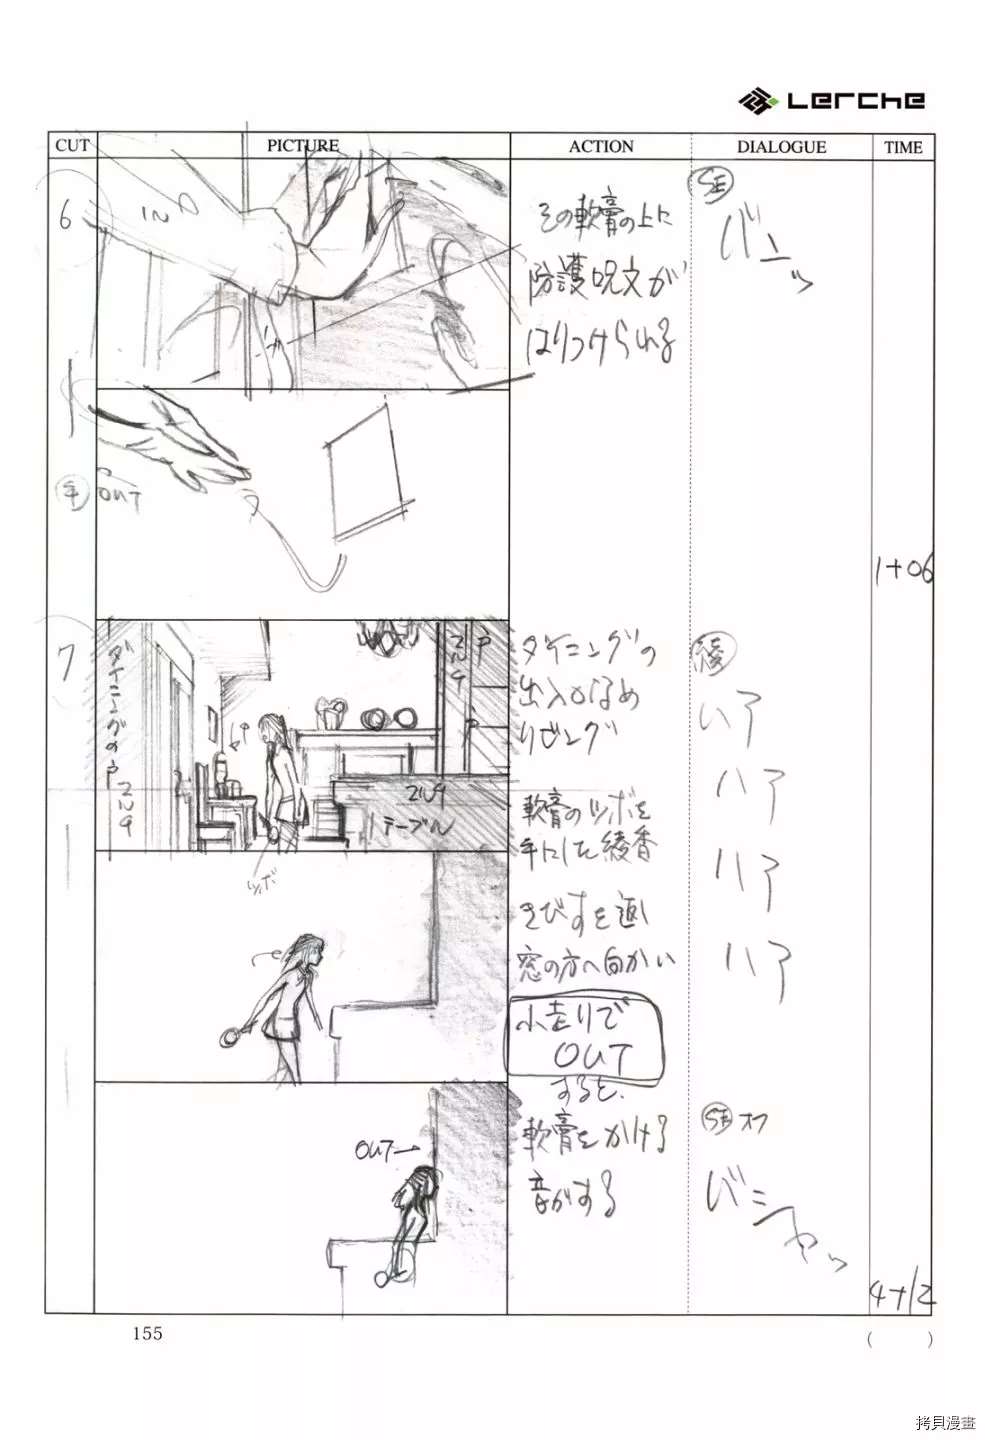 Lerche
CUT PICTURE ACTION DIALOGUE TIME
6
IN
その軟膏の上に
防護呪文が
はりつけられる
SE
バンッ
手
OUT
1+06
7
ダイニングの戸
BOOK
戸
BOOK
テーブル
ツボ
ダイニングの
出入口なめ
リビング
軟膏のツボを
手にした綾香
きびすを返し
窓の方へ向かい
小走りで
OUT
すると、
軟膏をかける
音がする
綾
ハア
ハア
ハア
ハア
OUT→
SE オフ
バシャッ
4+12
155
( )
拷貝漫畫